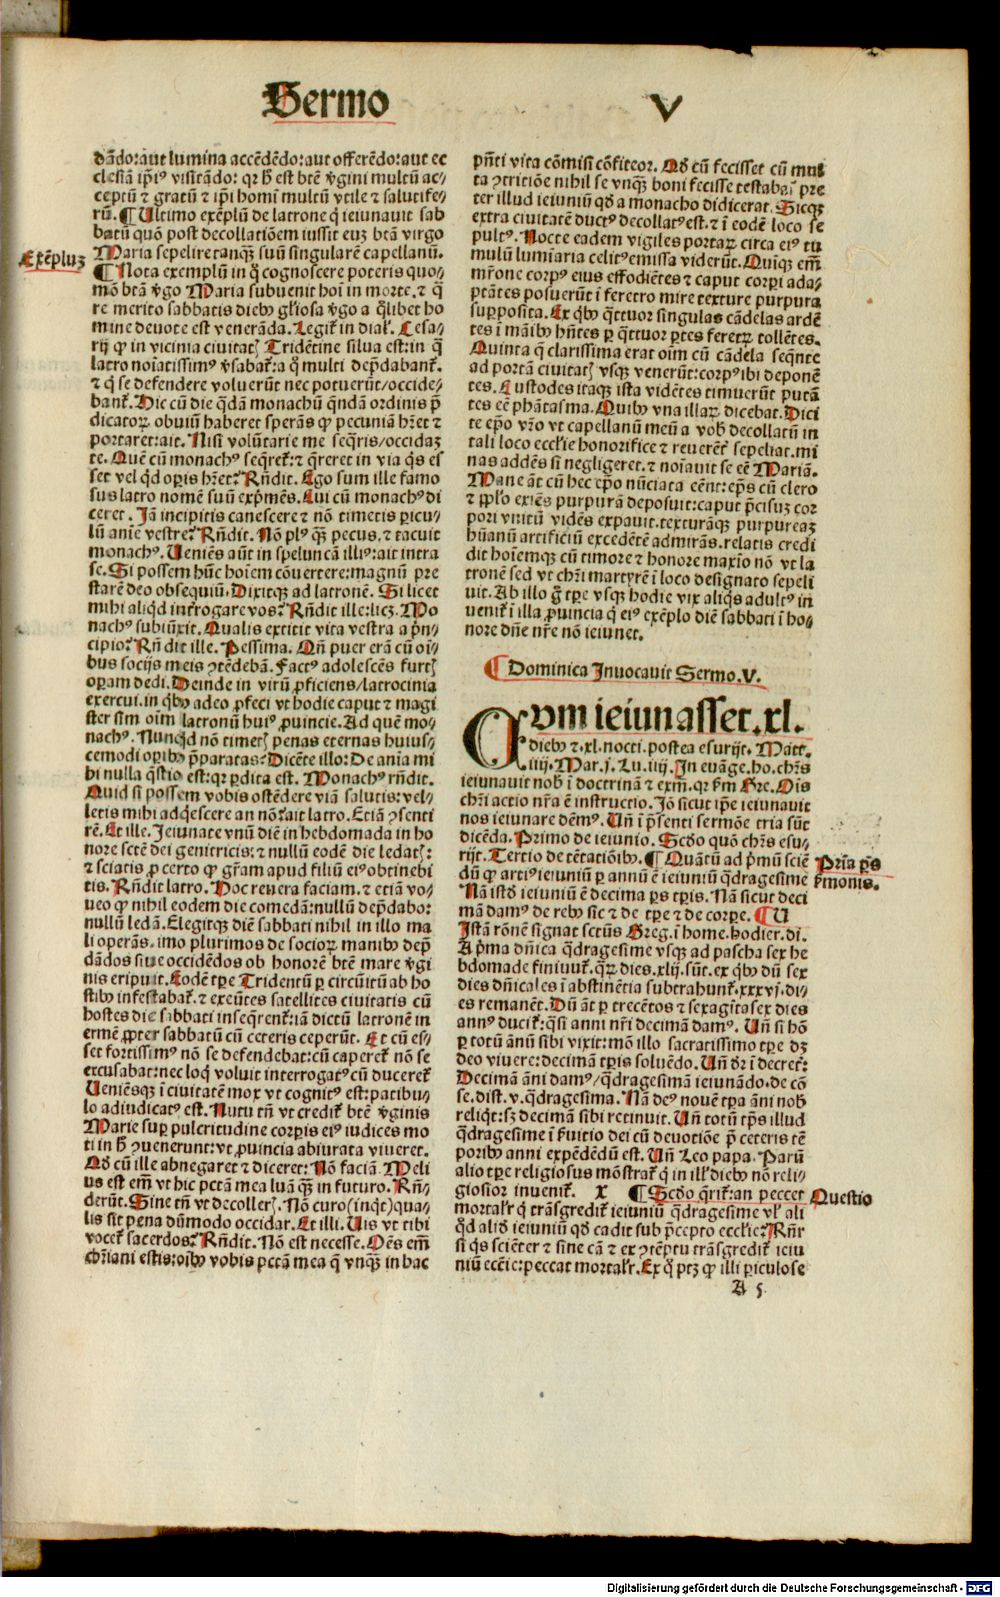 Sermo V
dādo: aut lumina accēdēdo: aut offerēdo: aut ec
clesiā ip̄iꝰ visitādo: qꝛ h̄ est btē v̄gini multū ac⸗
ceptū ⁊ gratū ⁊ ip̄i homī multū vtile ⁊ salutife⸗
rū. ¶ Ultimo exēplū de latrone q̄ ieiunauit sab
batū quō post decollatiōem iussit euꝫ btā virgo
Maria sepelire tanqꝫ suū singularē capellanū.
Exēpluꝫ
¶ Nota exemplū in q̊ cognoscere poteris quo⸗
mō btā v̄go Maria subuenit hoī in morte. ⁊ q̄
re merito sabbatis diebꝰ gl̄iosa v̄go a q̄libet ho
mine deuote est venerāda. Legit᷑ in dial. Cesa⸗
rij ꝙ in vicinia ciuitatꝭ Tridētine silua est: in q̄
latro noīatissimꝰ v̄sabat᷑: a q̊ multi dep̄dabant᷑.
⁊ q̄ se defendere voluerūt nec potuerūt / occide⸗
bant᷑. Hic cū die q̄dā monachū q̄ndā ordinis p̄
dicatoꝝ obuiū haberet sperās ꝙ pecuniā hr̄et ⁊
portaret: ait. Nisi volūtarie me seq̄ris / occidaꝫ
te. Quē cū monachꝰ seq̄ret᷑: ⁊ q̄reret in via q̇s es
set vel qd̄ oꝑis hr̄et? Rn̄dit. Ego sum ille famo
sus latro nomē suū exp̄mēs. Cui cū monachꝰ di
ceret. Jā incipitis canescere ⁊ nō timetis ꝑicu⸗
lū anīe vestre? Rn̄dit. Nō plꝰ qꝫ pecus. ⁊ tacuit
monachꝰ. Ueniēs aūt in speluncā illiꝰ: ait intra
se. Si possem hūc hoīem cōuertere: magnū pre
starē deo obsequiū. Dixitqꝫ ad latronē. Si licet
mihi aliqd̄ int̄rogare vos? Rn̄dit ille: licꝫ. Mo
nachꝰ subiūxit. Qualis extitit vita vestra a p̄n⸗
cipio? Rn̄dit ille. Pessima. Qn̄ puer erā cū oī⸗
bus socijs meis ꝯtēdebā. Factꝰ adolescēs furtꝭ
oꝑam dedi. Deinde in virū ꝓficiens / latrocinia
exercui. in q̇bꝰ adeo ꝓfeci vt hodie caput ⁊ magi
ster sim oīm latronū huiꝰ ꝓuincie. Ad quē mo⸗
nachꝰ. Nunqd̄ nō timetꝭ penas eternas huius⸗
cemodi oꝑibꝰ p̄paratas? Dicēte illo: De anīa mi
hi nulla q̄stio est: qꝛ ꝑdita est. Monachꝰ rn̄dit.
Quid si possem vobis ostēdere viā salutis: vel⸗
letis mihi adq̇escere an nō? ait latro. Etiā ꝯsenti
rē. Et ille. Jeiunate vnū diē in hebdomada in ho
nore sctē dei genitricis: ⁊ nullū eodē die ledatꝭ:
⁊ sciatis ꝓ certo ꝙ gr̄am apud filiū eiꝰ obtinebi
tis. Rn̄dit latro. Hoc reuera faciam. ⁊ etiā vo⸗
ueo ꝙ nihil eodem die comedā: nullū dep̄dabo:
nullū ledā. Elegitqꝫ diē sabbati nihil in illo ma
li operās. imo plurimos de socioꝝ manibꝰ dep̄
dādos siue occidēdos ob honorē btē mare v̄gi
nis eripuit. Eodē tꝑe Tridentū ꝑ circuitū ab ho
stibꝰ infestabat᷑. ⁊ exeūtes satellites ciuitatis cū
hostes die sabbati inseq̄rent᷑: iā dictū latronē in
ermē ꝓpter sabbatū cū ceteris ceperūt. Et cū es⸗
set fortissimꝰ nō se defendebat: cū caperet᷑ nō se
excusabat: nec loq̄ voluit interrogatꝰ cū duceret᷑
Ueniēsqꝫ ī ciuitatē mox vt cognitꝰ est: patibu⸗
lo adiudicatꝰ est. Nutu tn̄ vt credit᷑ btē v̄ginis
Marie suꝑ pulcritudine corꝑis eiꝰ iudices mo
ti in h̄ ꝯuenerunt: vt ꝓuincia abiurata viueret.
Qd̄ cū ille abnegaret ⁊ diceret: Nō faciā. Meli
us est em̄ vt hic pctā mea luā qꝫ in futuro. Rn̄⸗
derūt. Sine tn̄ vt decollerꝭ. Nō curo (inqt̄) qua⸗
lis sit pena dūmodo occidar. Et illi. Uis vt tibi
vocet᷑ sacerdos? Rn̄dit. Nō est necesse. Oēs em̄
chr̄iani estis: oībꝰ vobis pctā mea q̄ vnqꝫ in hac
pn̄ti vita cōmisi cōfiteor. Qd̄ cū fecisset cū mul
ta ꝯtritiōe nihil se vnqꝫ boni fecisse testabat᷑ pre
ter illud ieiuniū qd̄ a monacho didicerat. Sicqꝫ
extra ciuitatē ductꝰ decollatꝰ est. ⁊ ī eodē loco se
pultꝰ. Nocte eadem vigiles portaꝝ circa eiꝰ tu
mulū lumiaria celitꝰ emissa viderūt. Quīqꝫ em̄
mr̄one corpꝰ eius effodiētes ⁊ caput corꝑi ada⸗
ptātes posuerūt ī feretro mire texture purpura
suꝑposita. Ex q̇bꝰ q̄ttuor singulas cādelas ardē
tes ī māibꝰ hn̄tes ꝑ q̄ttuor ꝑtes feretꝝ tollētes.
Quinta q̄ clarissima erat oīm cū cādela seq̄nte
ad portā ciuitatꝭ vsqꝫ venerūt: corpꝰ ibi deponē
tes. Custodes itaqꝫ ista vidētes timuerūt putā
tes eē phātasma. Quibꝰ vna illaꝝ dicebat. Dici
te ep̄o vr̄o vt capellanū meū a vob̄ decollatū in
tali loco eccl̄ie honorifice ⁊ reuerēt᷑ sepeliat. mi
nas addēs si negligeret. ⁊ noīauit se eē Mariā.
Mane āt cū hec ep̄o nūciata eēnt: ep̄s cū clero
⁊ ꝓp̄lo exiēs purpurā deposuit: caput p̄cisuꝫ cor
pori vnitū vidēs expauit. texturāqꝫ purpureaꝫ
hūanū artificiū excedētē admirās. relatis credi
dit hoīemqꝫ cū timore ⁊ honore maxīo nō vt la
tronē sed vt chr̄i martyrē ī loco designato sepeli
uit. Ab illo g̊ tꝑe vsqꝫ hodie vix aliq̇s adultꝰ in
venit᷑ ī illa ꝓuincia q̄ eiꝰ exēplo diē sabbati ī ho⸗
nore dn̄e nr̄e nō ieiunet.
¶ Dominica Inuocauit Sermo. V.
Cvm ieiunasset. xl.
diebꝰ ⁊. xl. nocti. postea esurijt. Matt.
iiij. Mar. j. Lu. iiij. In euāge. ho. chr̄s
ieiunauit nob̄ ī doctrinā ⁊ exm̄. qꝛ ẜm Gre. Ois
chr̄i actio nr̄a ē instructio. Jō sicut ip̄e ieiunauit
nos ieiunare dēmꝰ. Un̄ ī p̄senti sermōe tria sūt
dicēda. Primo de ieiunio. Scd̄o quō chr̄s esu⸗
rijt. Tertio de tētatiōibꝰ. ¶ Quātū ad p̄mū sciē
Prīa ꝑs
ẜmonis.
dū ꝙ arctiꝰ ieiuniū ꝑ annū ē ieiuniū q̄dragesime
Nā istd̄ ieiuniū ē decima ꝑs tꝑis. Nā sicut deci
mā damꝰ de rebꝰ sic ⁊ de tꝑe ⁊ de corꝑe. ¶ U
Jstā rōnē signat sctūs Greg. ī home. hodier. di.
A p̄ma dn̄ica q̄dragesime vsqꝫ ad pascha sex he
bdomade finiunt᷑. qꝝ dies. xlij. sūt. ex q̇bꝰ dū sex
dies dn̄icales ī abstinētia subtrahunt᷑. xxxvj. di⸗
es remanēt. Dū āt ꝑ trecētos ⁊ sexagīta sex dies
annꝰ ducit᷑: q̄si anni nr̄i decimā damꝰ. Un̄ si hō
ꝑ totū ānū sibi vixit: mō illo sacratissimo tꝑe dꝫ
deo viuere: decimā tꝑis soluēdo. Un̄ dr̄ ī decret᷑:
Decimā āni damꝰ / q̄dragesimā ieiunādo. de cō
se. dist. v. q̄dragesima. Nā deꝰ nouē tꝑa āni nob̄
reliq̇t: sꝫ decimā sibi retinuit. Un̄ totū tꝑs illud
q̄dragesime ī ẜuitio dei cū deuotiōe p̄ ceteris tē
poribꝰ anni expēdēdū est. Un̄ Leo papa. Parū
alio tꝑe religiosus mōstrat᷑ q̄ in ill᷑ diebꝰ nō reli⸗
giosior inuenit᷑. x ¶ Scd̄o q̄rit᷑: an peccet
Questio
mortalr̄ q̄ trāsgredit᷑ ieiuniū q̄dragesime vl᷑ ali
qd̄ aliō ieiuniū qd̄ cadit sub p̄cepto eccl̄ie? Rn̄r
si q̇s sciēter ⁊ sine cā ⁊ ex ꝯtēptu trāsgredit᷑ ieiu
niū eccīe: peccat mortalr̄. Ex q̊ ptꝫ ꝙ illi ꝑiculose
A 5
Digitalisierung gefördert durch die Deutsche Forschungsgemeinschaft - DFG